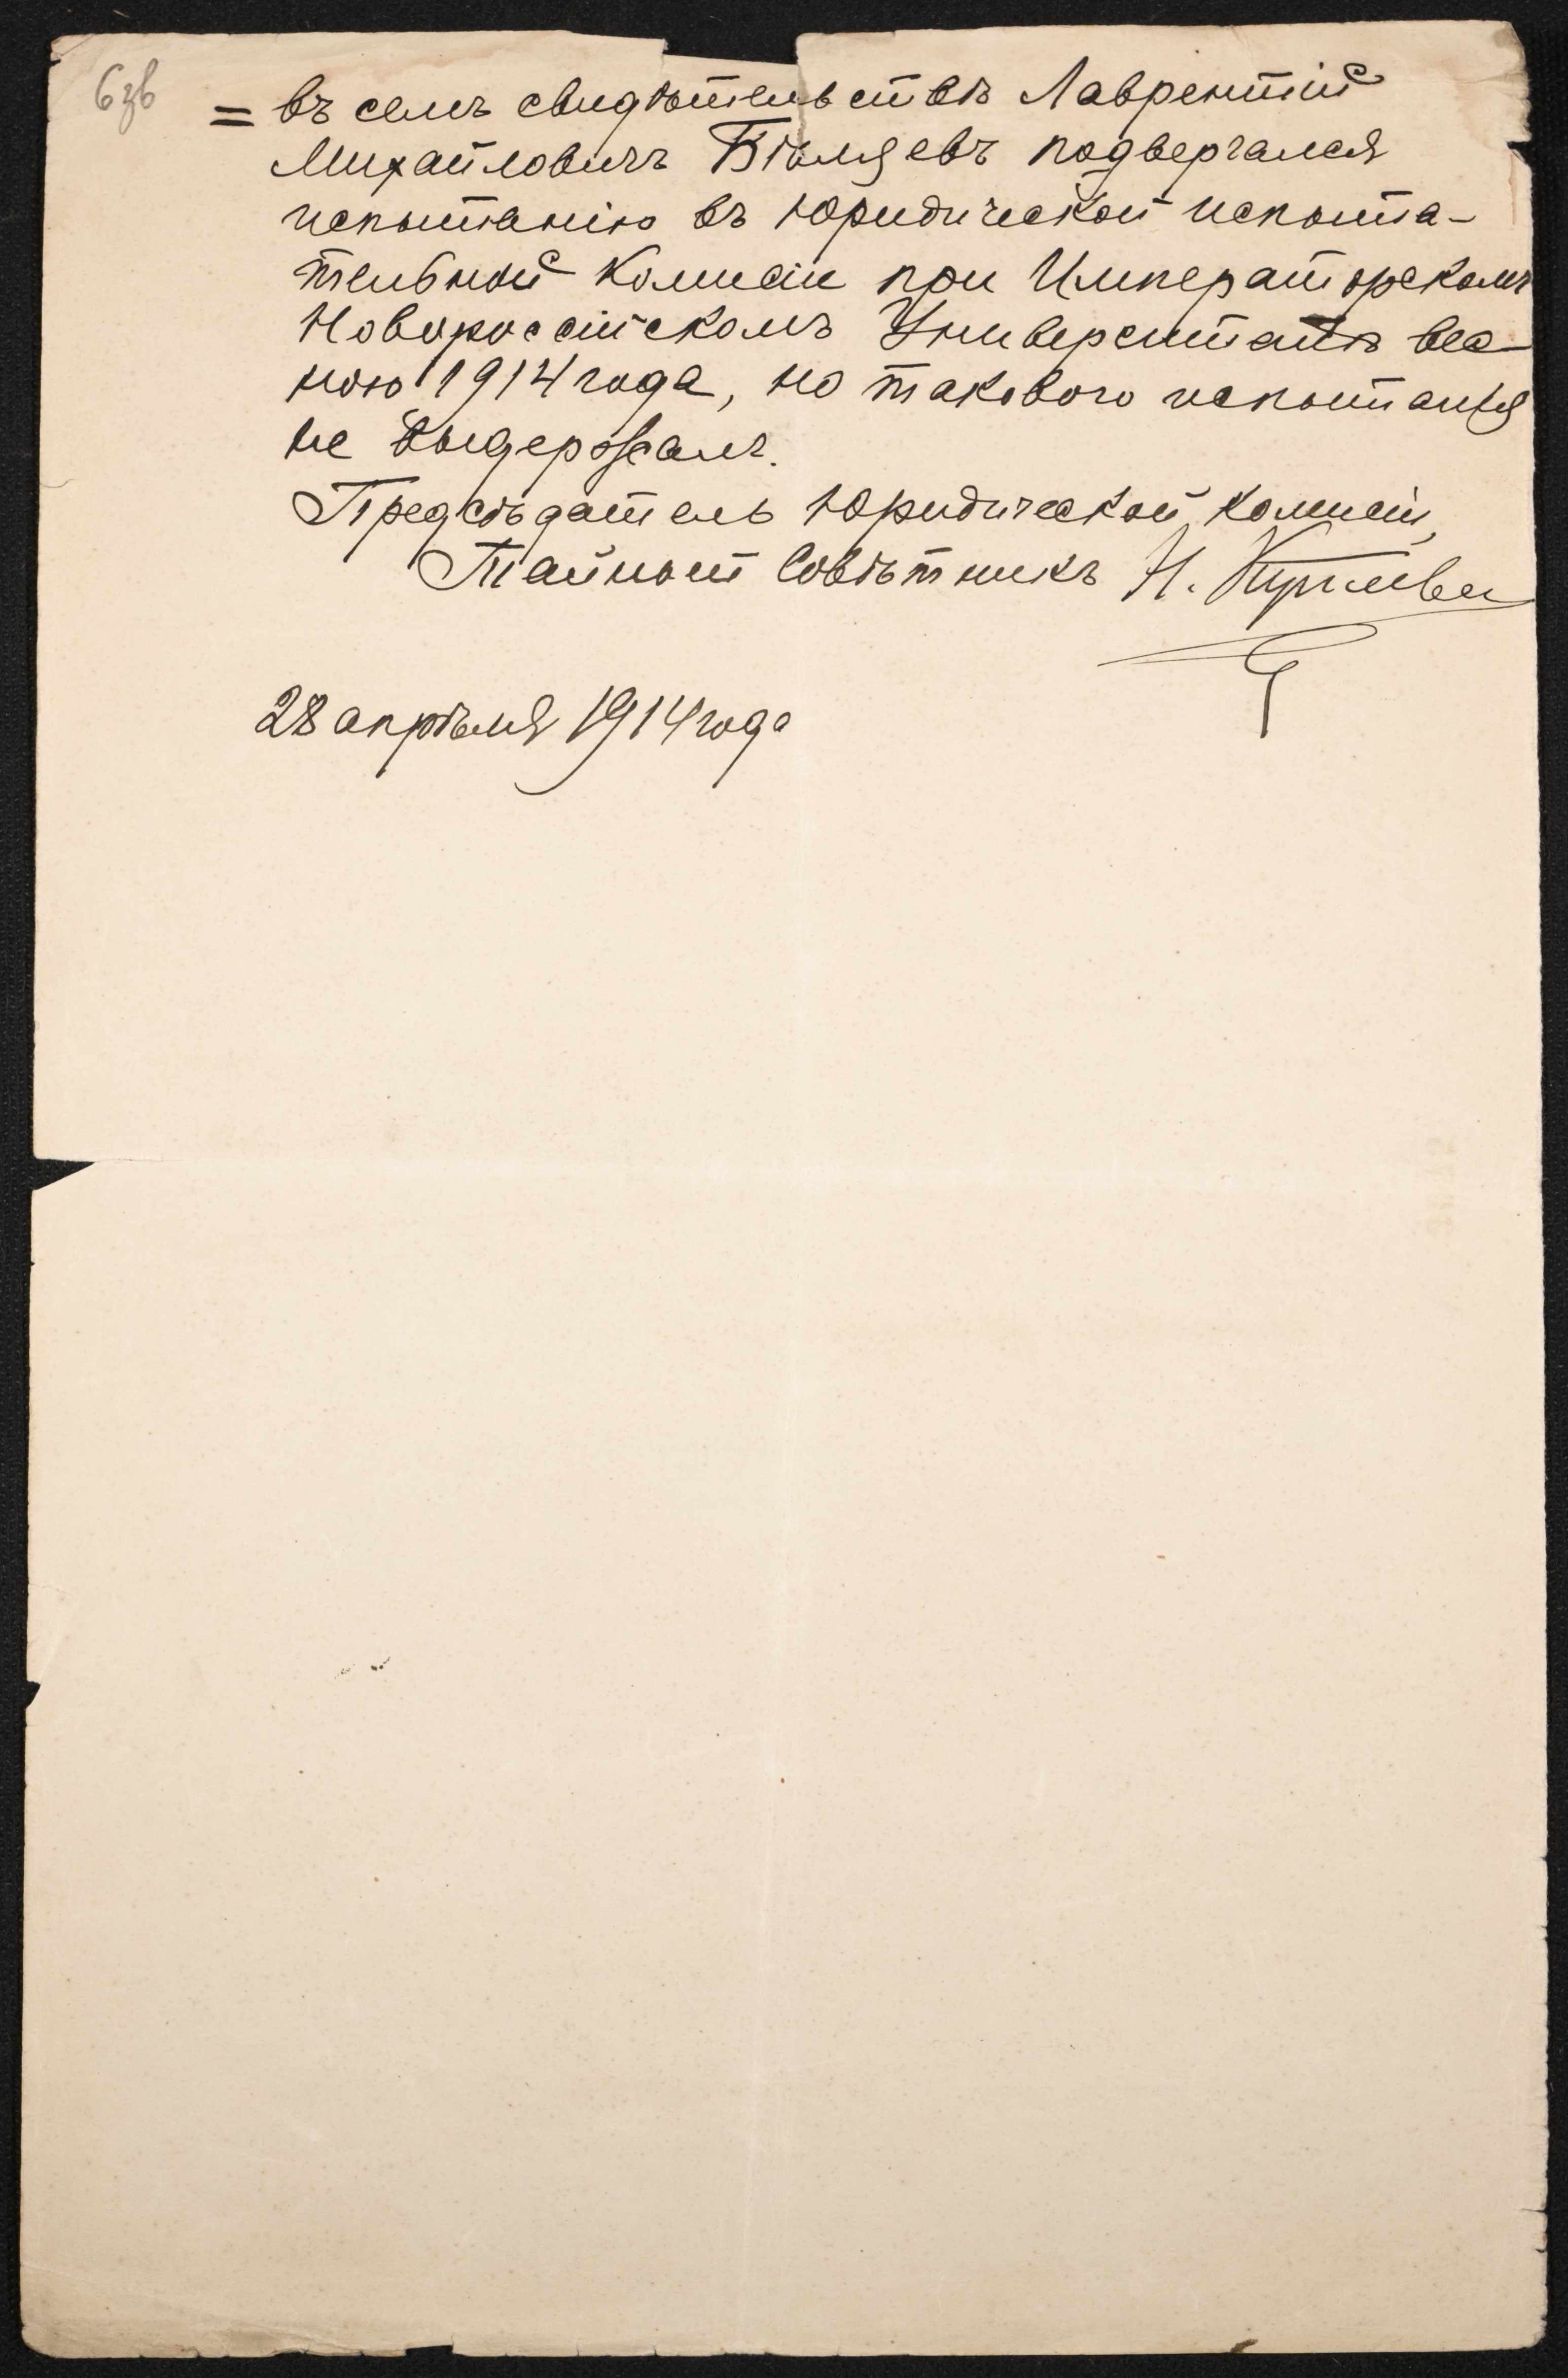 6зв
= въ семъ свидѣтельствѣ Лаврентій
Михайловичъ Бѣляевъ подвергался
испытанію въ Юридической испыта-
тельной Комисіи при Императорскомъ
Новороссійскомъ Университетѣ вес
ною 1914 года, но такового испытанія
не выдержалъ.
Предсѣдатель Юридической комисіи,
Тайный Совѣтникъ Н.
28 апрѣля 1914 года